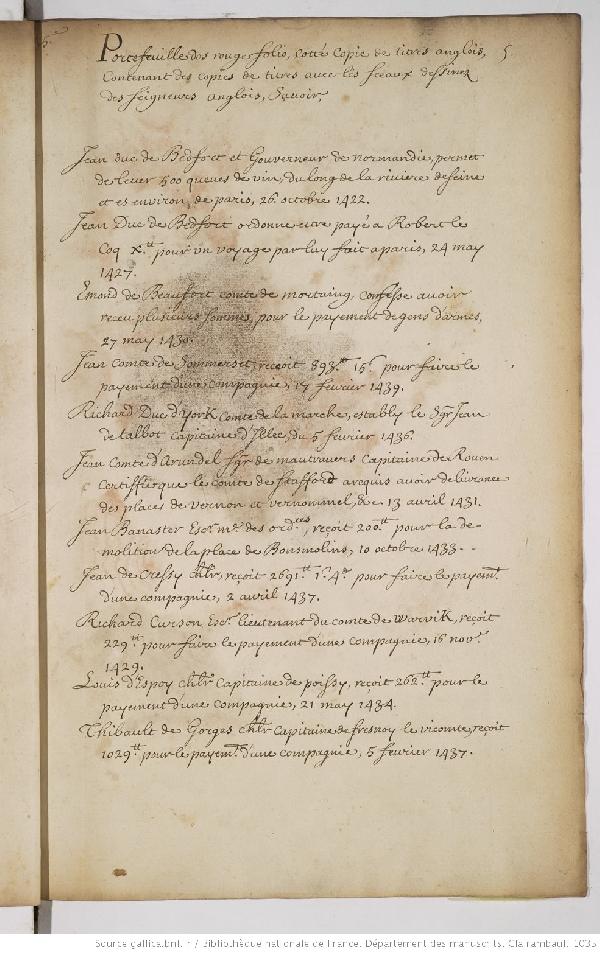 Portefeuille dos rouge folio, cotté Copie de titres anglois, 5.
Contenant des copies de titres avec les sceaux dessinez
des seigneurs anglois, Savoir,
Jean duc de Bedfort et Gouverneur de normandie, permet
de lever 500 queues de vin, du long de la riviere de seine
et es environ, de paris, 26 octobre 1422.
Jean Duc de Bedfort ordonne estre payé a Robert le
Coq x.tt pour un voyage par luy fait a paris, 24 may
1427.
Emond de Beaufort comte de mortaing, confesse avoir
receu plusieurs sommes, pour le payement de gens d'armes,
27 may 1430.
Jean Comte de Sommerset, reçoit 893.tt 15s. pour faire le
payement d'une compagnie, 17 fevrier 1439.
Richard Duc d'york Comte de la marche, establÿ le Sgr. Jean
de talbot Capitaine d', du 5 fevrier 1436.
Jean Comte d'arundel Sgr. de mautravers Capitaine de Rouen
Certiffie que le comte de Stafford a requis avoir delivrance
des places de vernon et vernonnel, &c 13 avril 1431.
Jean Banaster Escr. mre. des ordces, reçoit 200tt pour la de-
molition de la place de Bonsmolins, 10 octobre 1433.
Jean de Cressy chlr, reçoit 2691tt 1s. 4d. pour faire le payemt.
d'une compagnie, 2 avril 1437.
Richard Curson Escr. lieutenant du comte de warvik, reçoit
229tt pour faire le payement d'une Compagnie, 16 novr.
1429.
Louis d'Espoy chlr Capitaine de poissy, reçoit 262tt pour le
payement d'une compagnie, 21 may 1434.
Thibault de Gorges chlr Capitaine de fresnoy le vicomte, reçoit
1029tt pour le payemt. d'une compagnie, 5 fevrier 1437.
Source gallica.bnf.fr / Bibliothèque nationale de France. Département des manuscrits. Clairambault. 1035